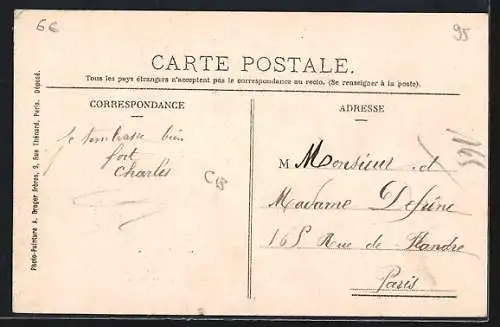 6€
95
CARTE POSTALE.
Tous les pays étrangers n'acceptent pas la correspondance au recto. (Se renseigner à la poste).
CORRESPONDANCE
ADRESSE
Je t'embrasse bien
fort
Charles
CB
1165
M Monsieur et
Madame Defrène
165 Rue de Flandre
Paris
Photo-Peinture A. Breger frères, 9, Rue Thénard, Paris. Déposé.